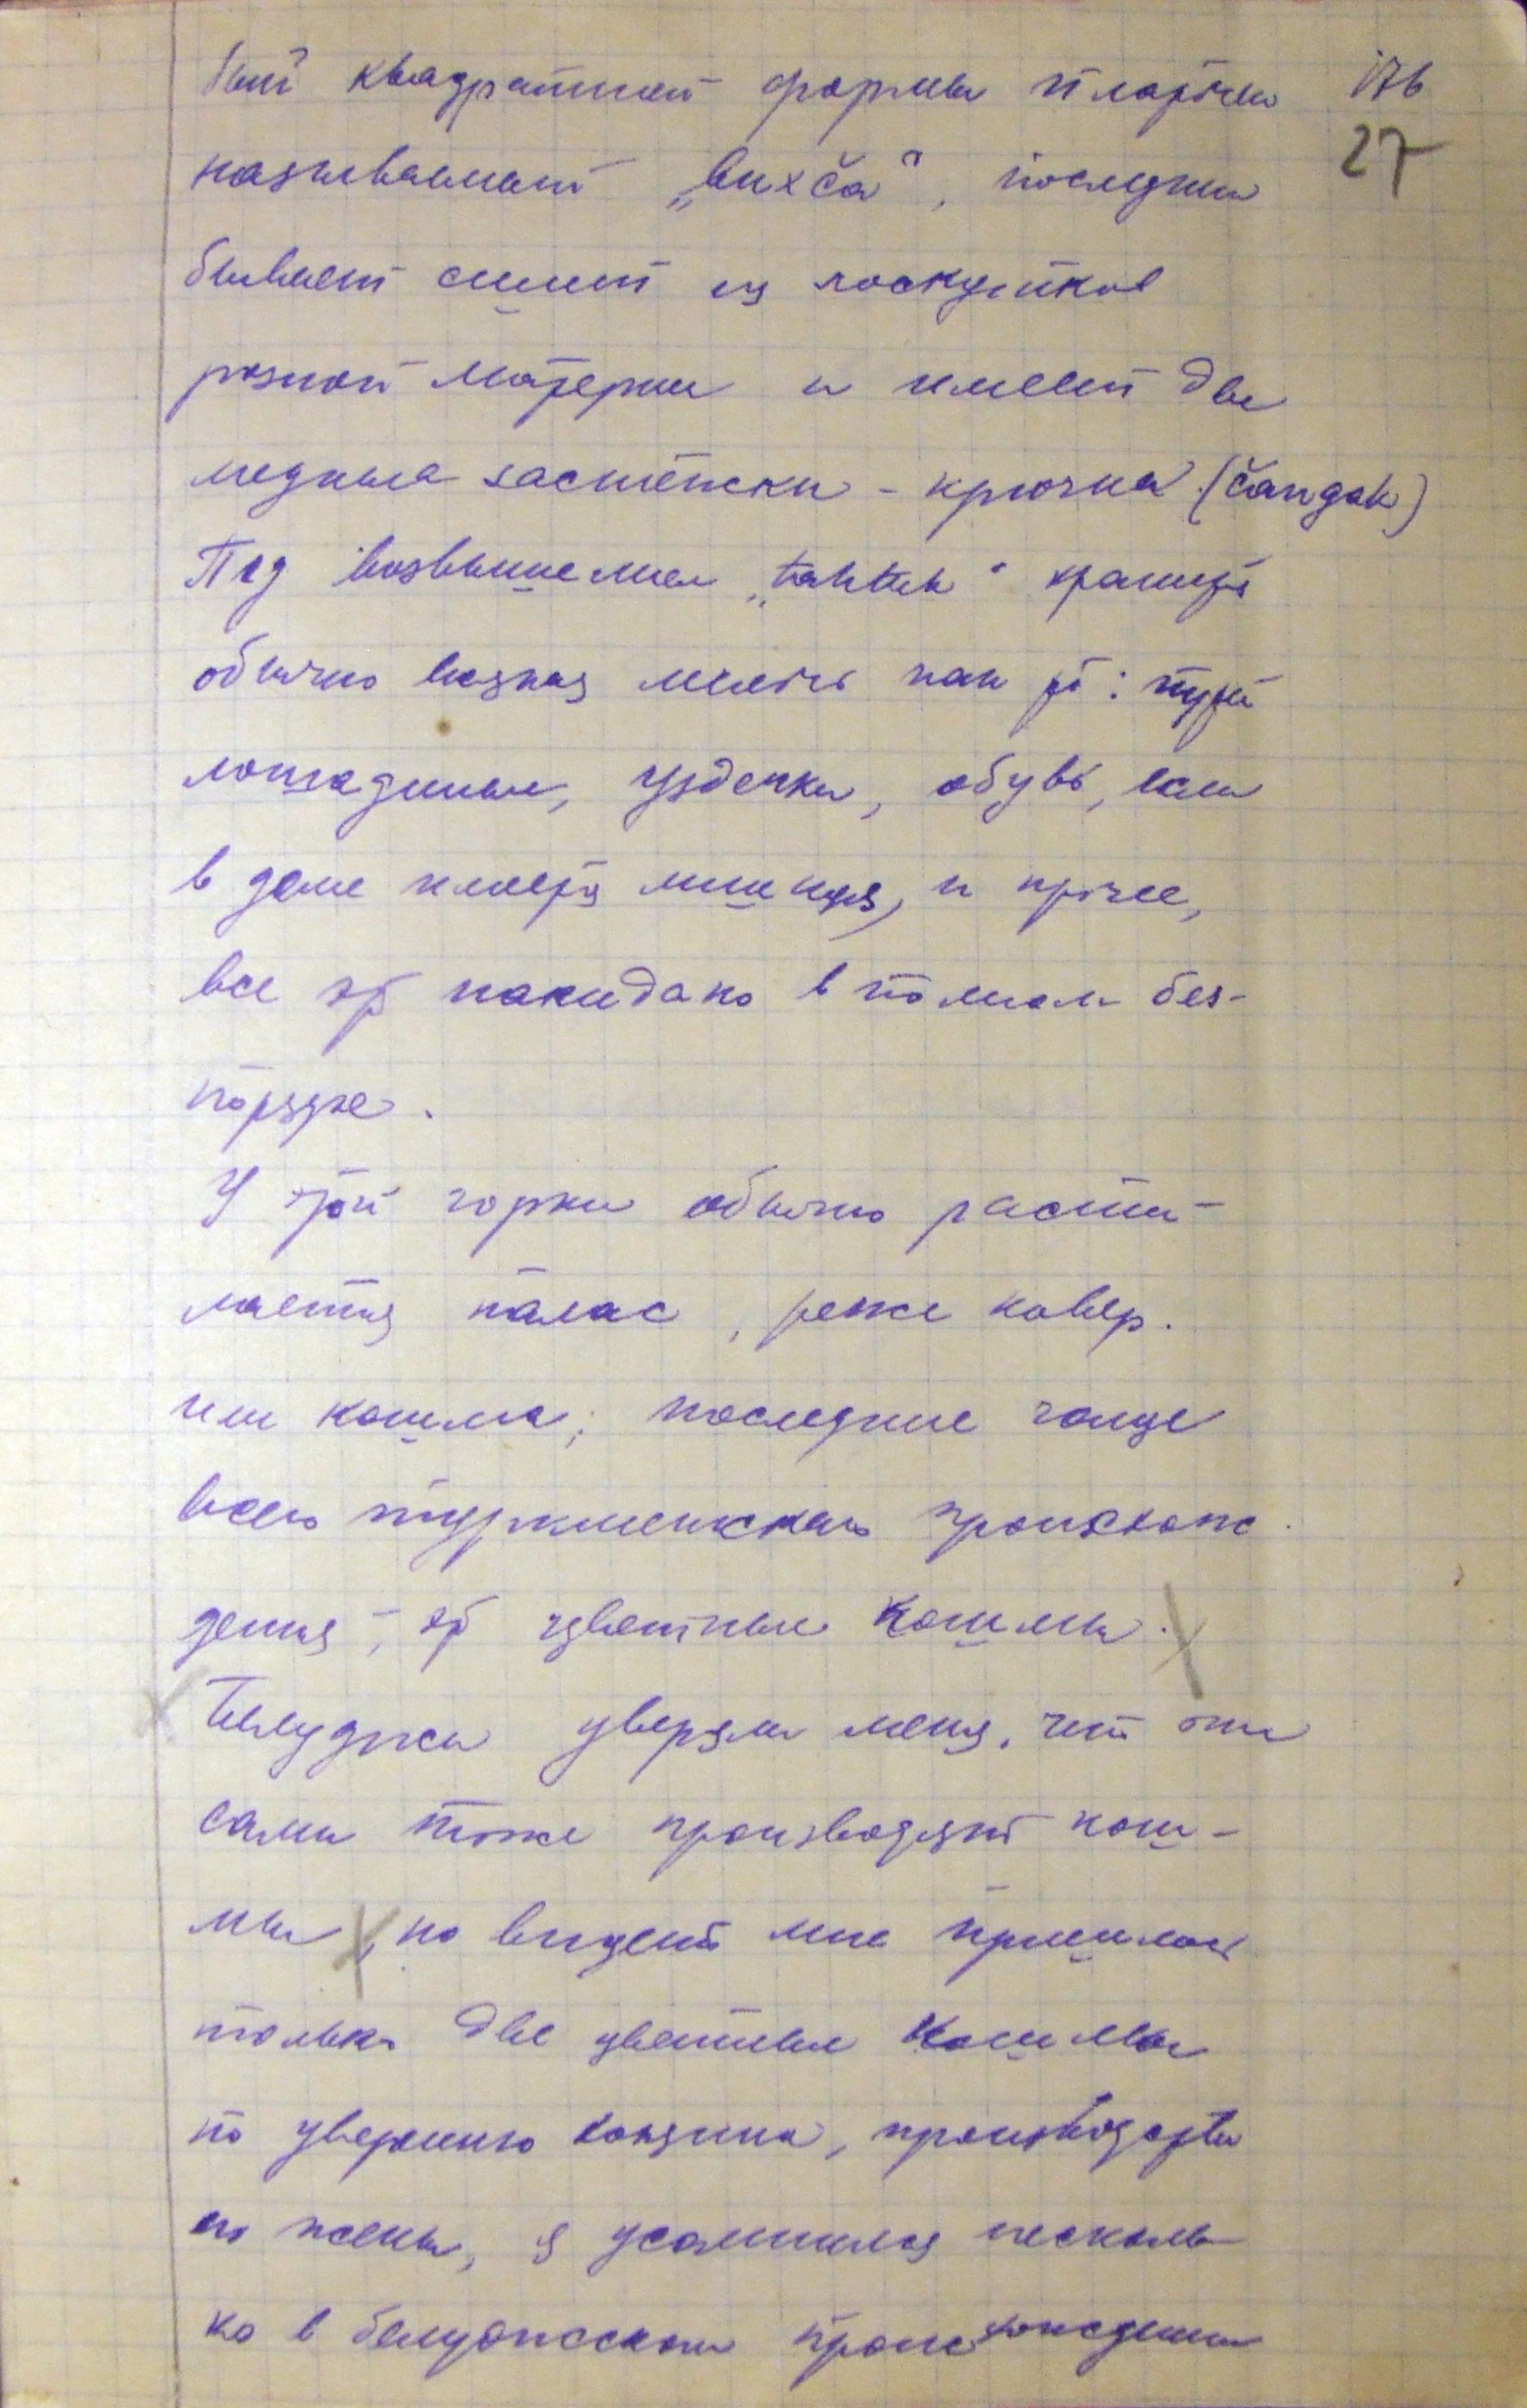 квадратной формы платочки 176
27
называемый „buxča“, последний
бывает сшит из лоскутков
разной материи и имеет две
медные застёжки - крючка (čangak)
Под возвышением „taht“ хранится
обычно всякая мелочь как то: путы
лошадиные, уздечки, обувь, если
в доме имеется мишкяр, и прочее,
все это накидано в полном бес-
порядке.
У этой горки обычно рассти-
лается палас, реже ковер.
или кошма; последние чаще
всего туркменского происхож-
дения, это цветные кошмы.
Белуджи уверяли меня, что они
сами тоже производят кош-
мы, но видеть мне пришлось
только две цветные кошмы
по уверению хозяина, производства
его жены, я усомнился несколь-
ко в белуджском происхождении